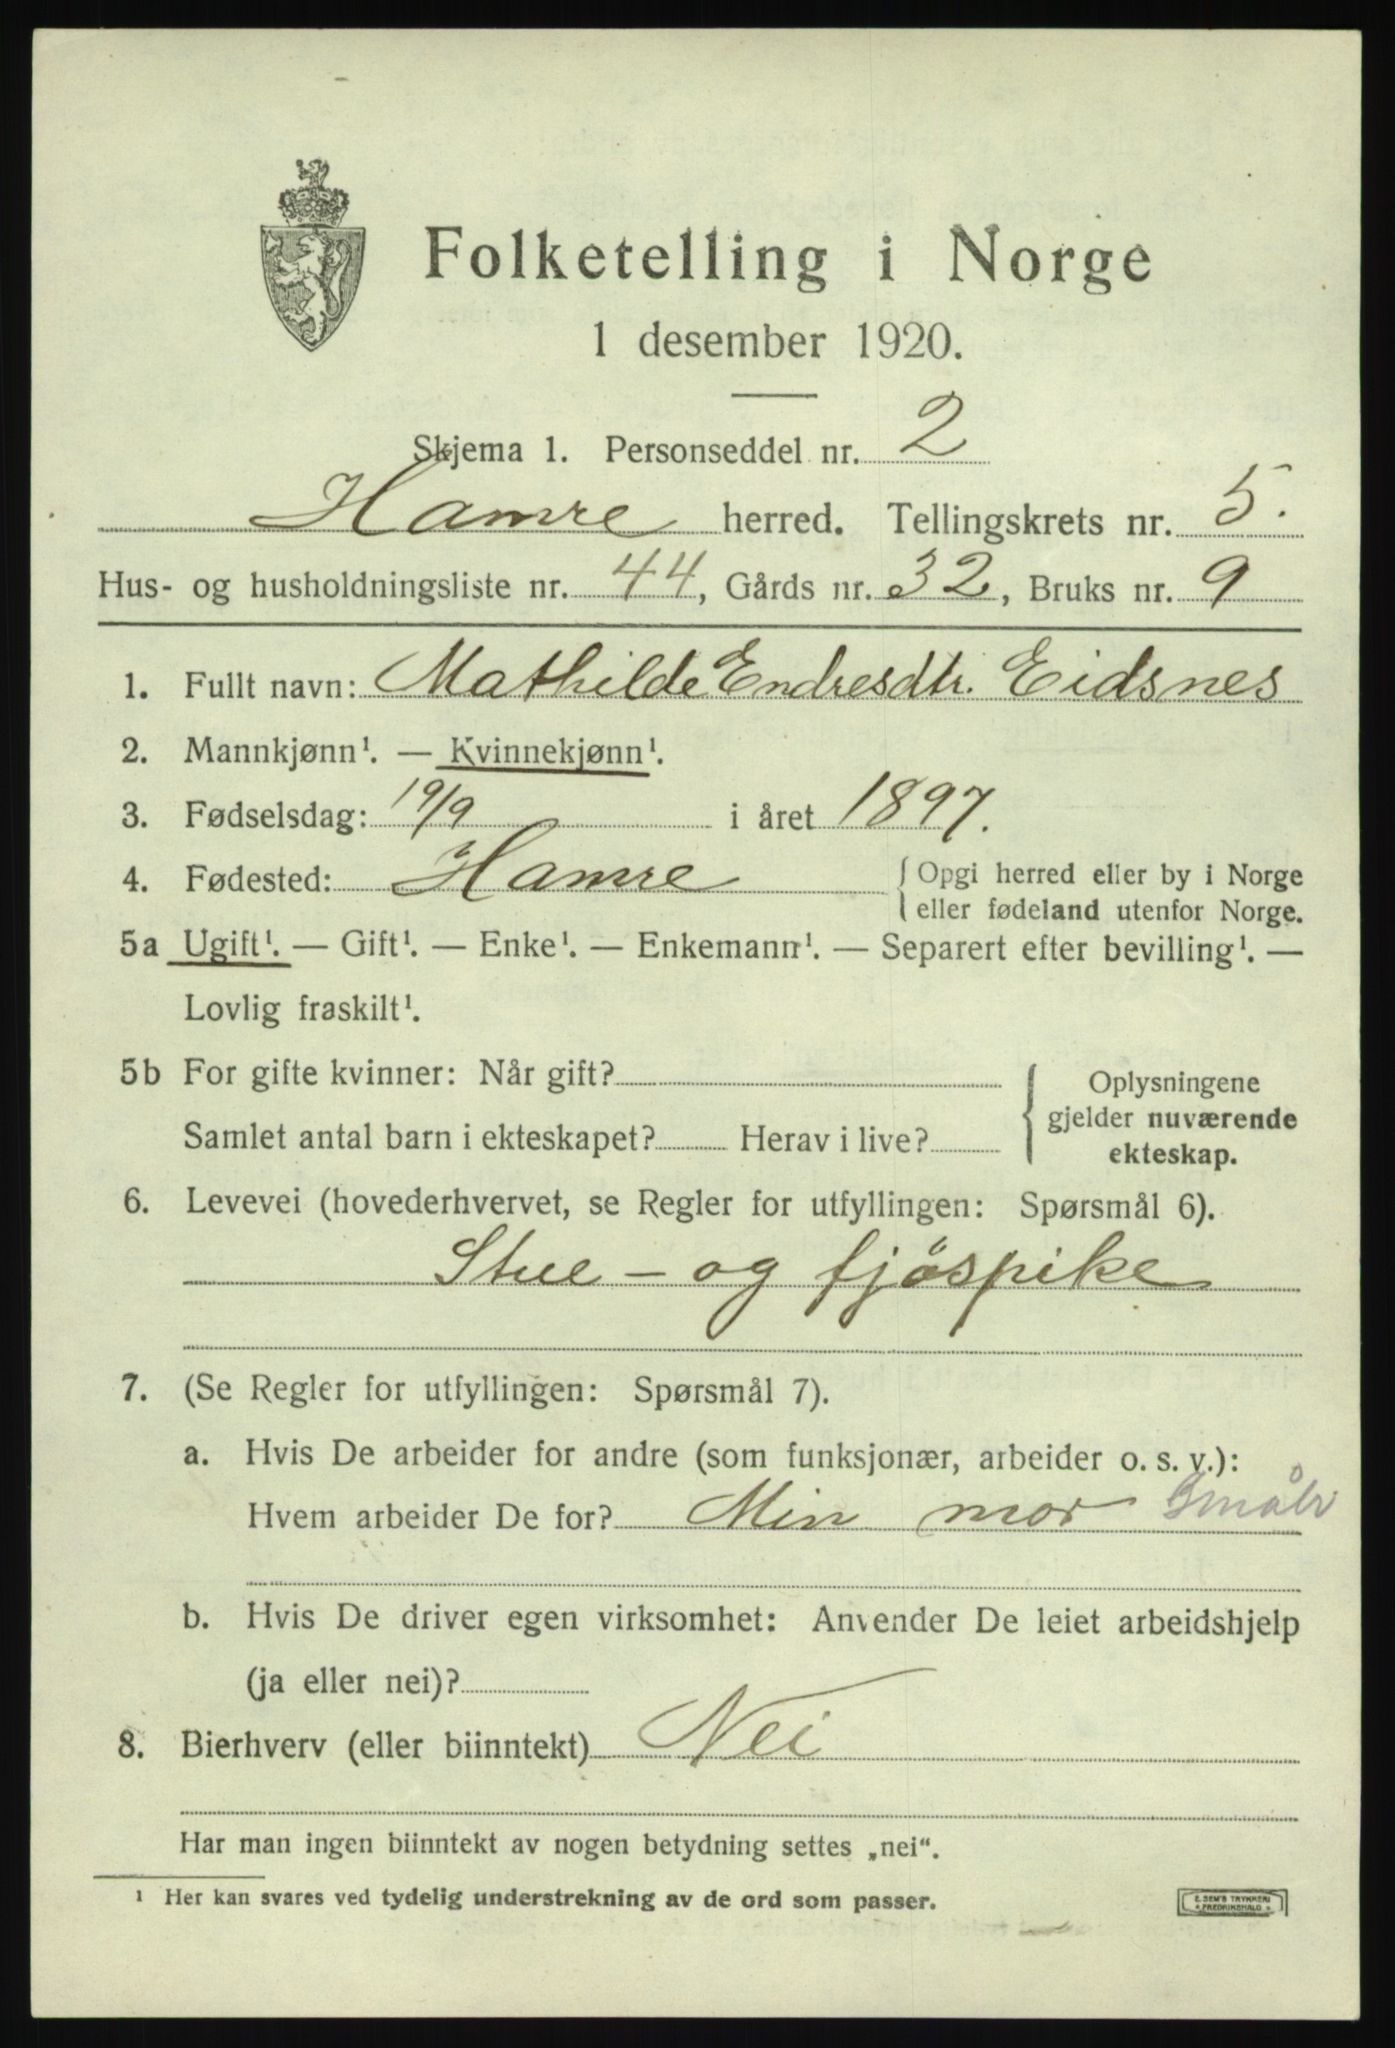 Folketelling i Norge
1 desember 1920.
Skjema 1. Personseddel nr. 2
Hamre herred. Tellingskrets nr. 5.
Hus- og husholdningsliste nr. 44, Gårds nr. 32, Bruks nr. 9
1. Fullt navn: Mathilde Endresdtr. Eidsnes
2. Mannkjønn¹. — Kvinnekjønn¹.
3. Fødselsdag: 19/9 i året 1897.
4. Fødested: Hamre { Opgi herred eller by i Norge
eller fødeland utenfor Norge.
5a Ugift¹. — Gift¹. — Enke¹. — Enkemann¹. — Separert efter bevilling¹. —
Lovlig fraskilt¹.
5b For gifte kvinner: Når gift?
Samlet antal barn i ekteskapet? Herav i live?
{ Oplysningene
gjelder nuværende
ekteskap.
6. Levevei (hovederhvervet, se Regler for utfyllingen: Spørsmål 6).
Stue - og fjöspike
7. (Se Regler for utfyllingen: Spørsmål 7).
a. Hvis De arbeider for andre (som funksjonær, arbeider o. s. v.):
Hvem arbeider De for? Min mor Småbr
b. Hvis De driver egen virksomhet: Anvender De leiet arbeidshjelp
(ja eller nei)?
8. Bierhverv (eller biinntekt) Nei
Har man ingen biinntekt av nogen betydning settes „nei“.
¹ Her kan svares ved tydelig understrekning av de ord som passer.
E. SEM'S TRYKKERI
* FREDRIKSHALD *